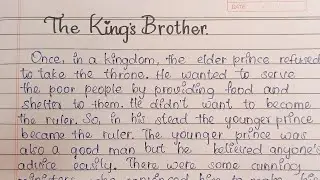 The King's Brother.
Once, in a kingdom, the elder prince refused
to take the throne. He wanted to serve
the poor people by providing food and
shelter to them. He didn't want to become
the ruler. So, in his stead the younger prince
became the ruler. The younger prince was
also a good man but he believed anyone's
advice easily. There were some cunning